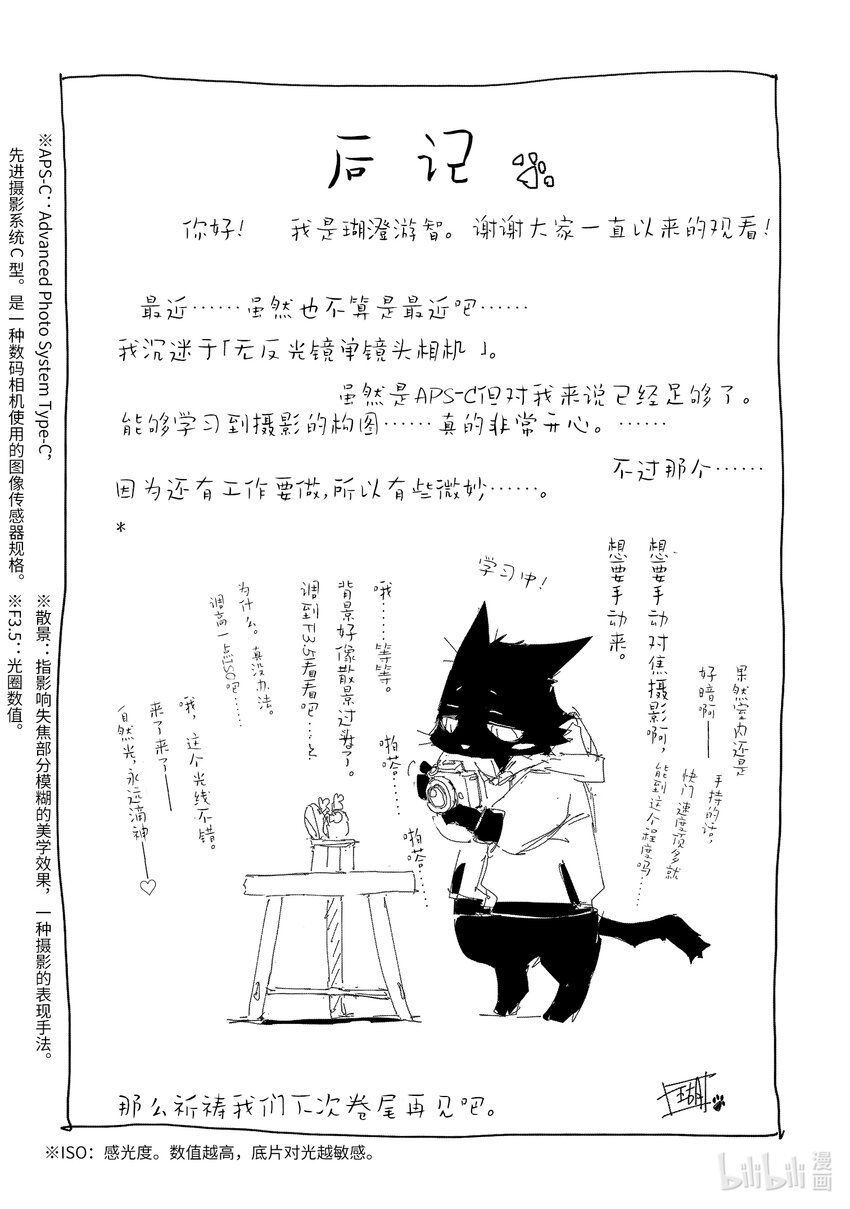 后记
你好！ 我是瑚澄游智。谢谢大家一直以来的观看！
最近……虽然也不算是最近吧……
我沉迷于「无反光镜单镜头相机」。
虽然是APS-C但对我来说已经足够了。
能够学习到摄影的构图……真的非常开心。……
不过那个……
因为还有工作要做,所以有些微妙……。
*
学习中！
果然室内还是
好暗啊——
手持的话，
快门速度顶多就
能到这个程度吗……
想要手动对焦摄影啊，
想要手动来。
啪嗒……
啪嗒……
哦……等等。
背景好像散景过头了。
调到F3.5看看吧……
为什么。真没办法。
调高一点ISO吧……
哦，这个光线不错。
来了来了——
自然光,永远滴神——♡
那么祈祷我们下次卷尾再见吧。
瑚
※APS-C：Advanced Photo System Type-C，
先进摄影系统C型。是一种数码相机使用的图像传感器规格。
※散景：指影响失焦部分模糊的美学效果，一种摄影的表现手法。
※F3.5：光圈数值。
※ISO：感光度。数值越高，底片对光越敏感。
bilibili漫画